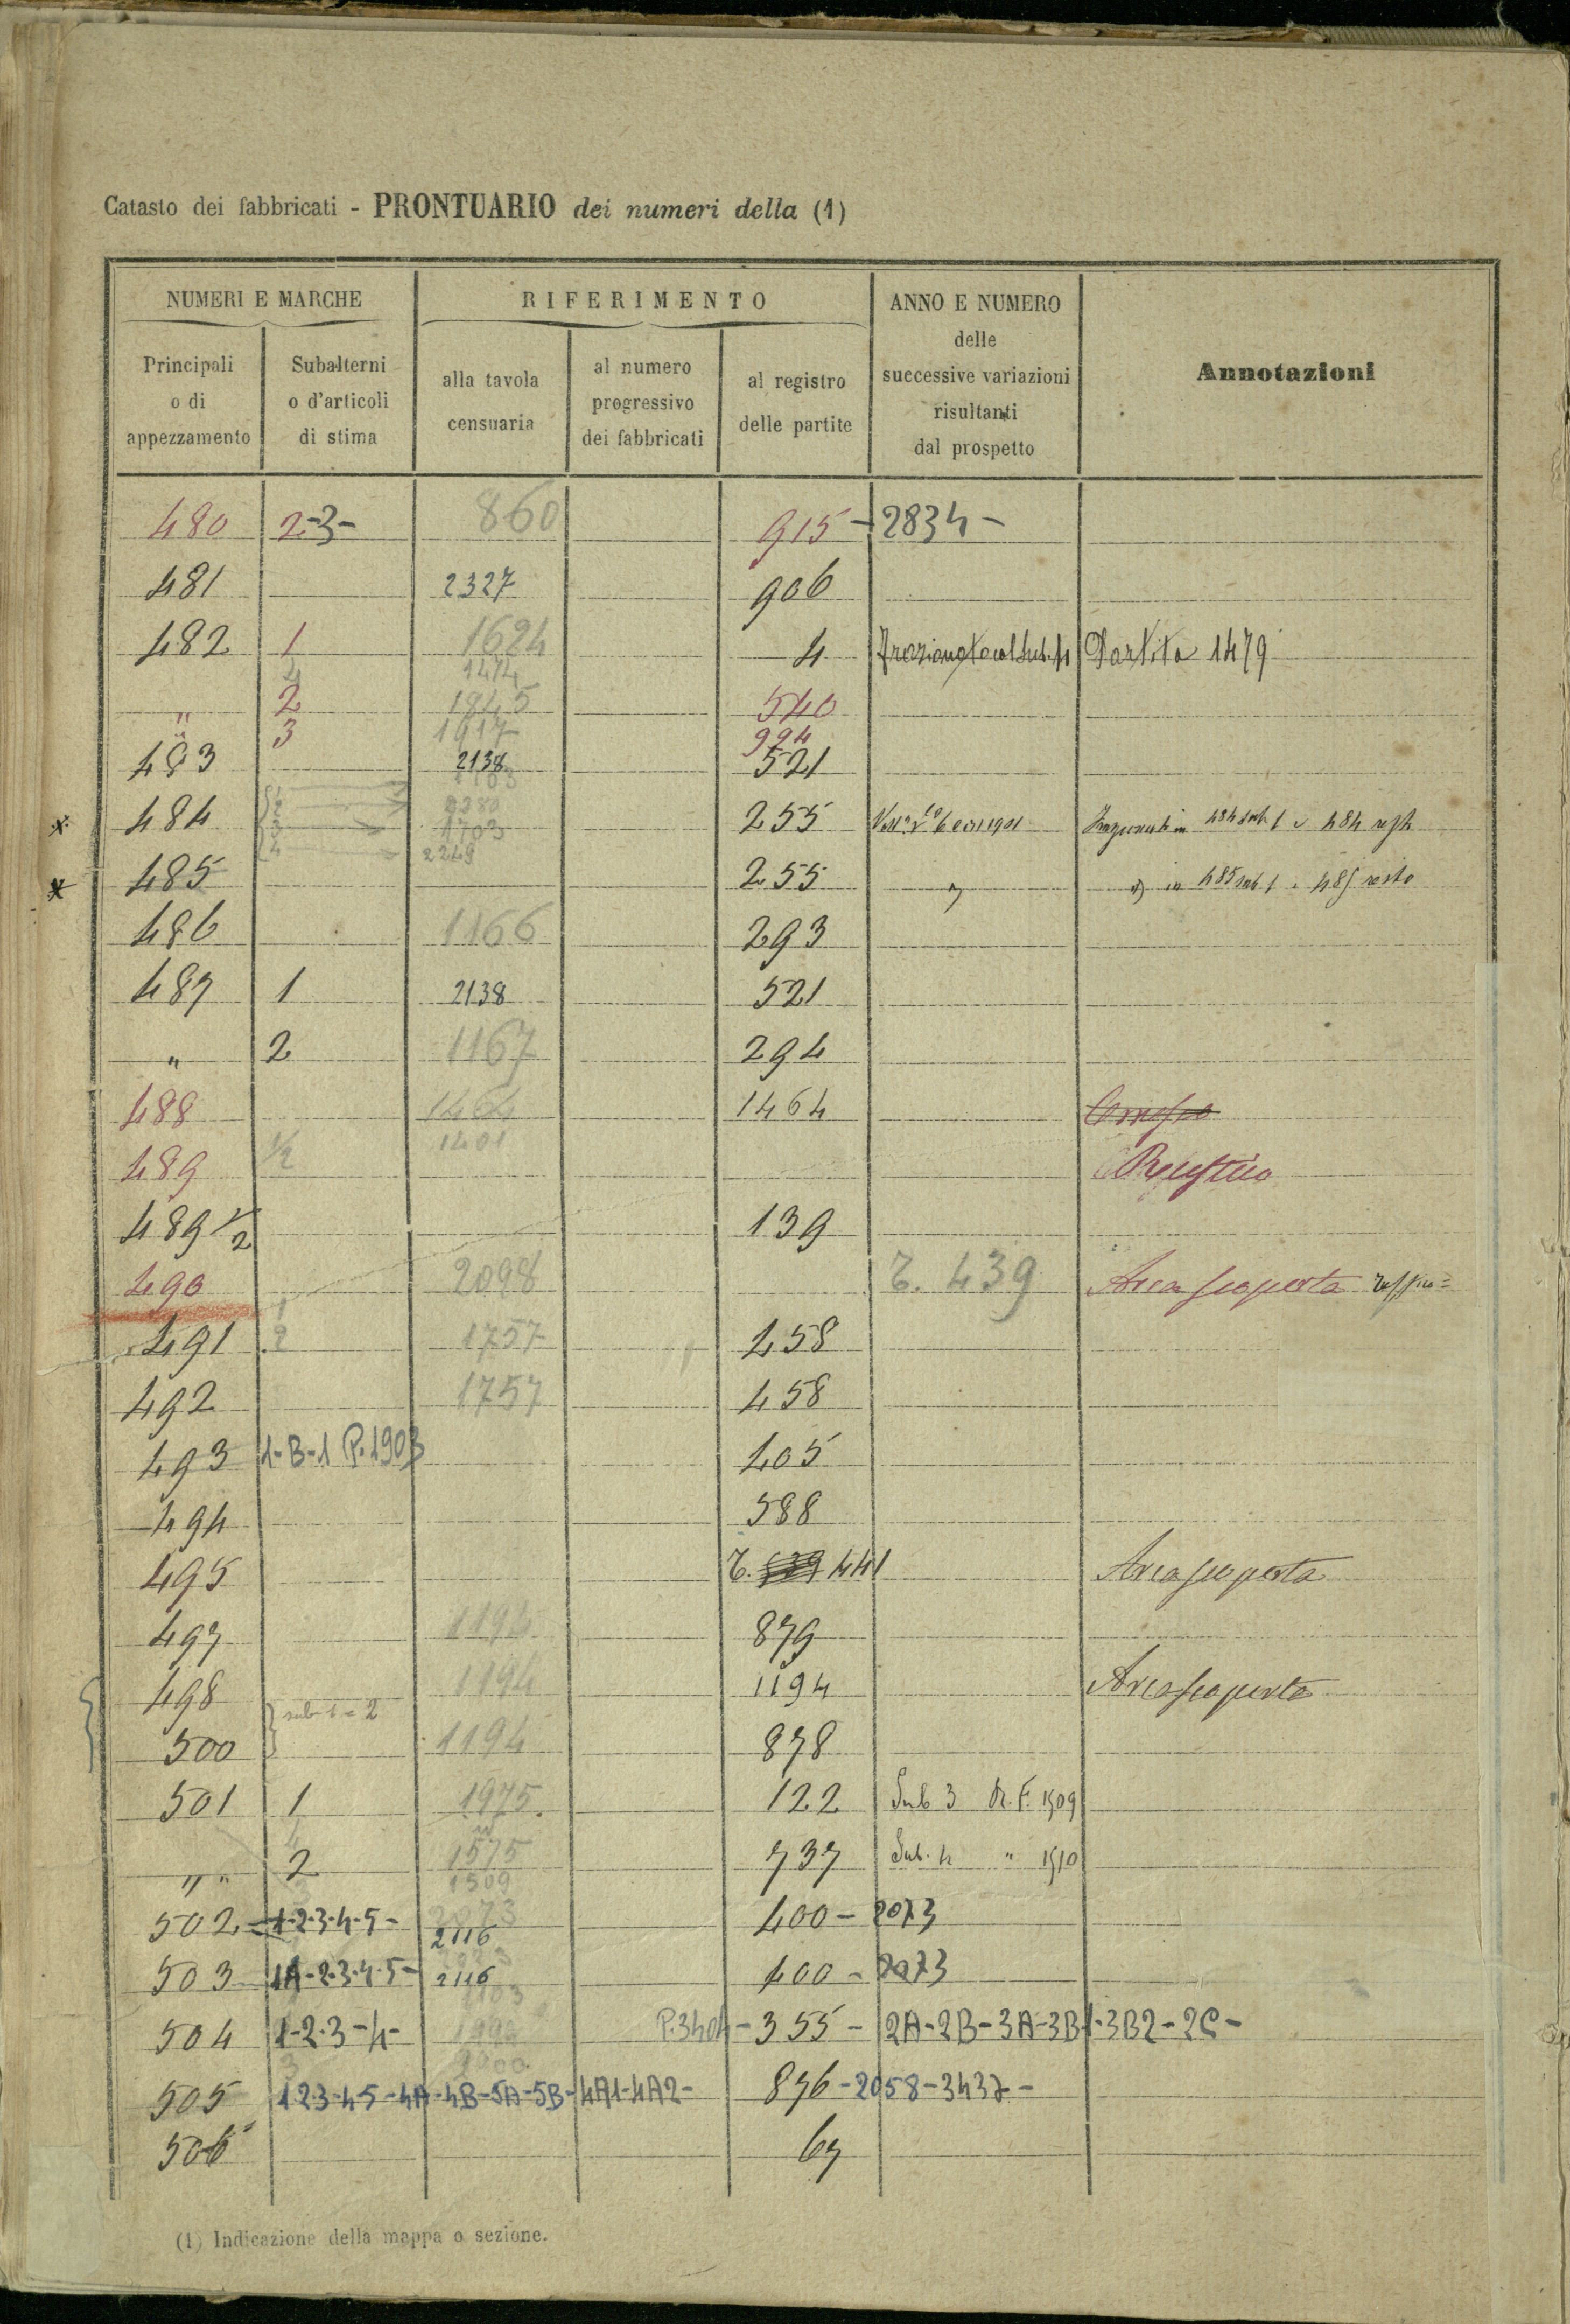 Catasto dei fabbricati - PRONTUARIO dei numeri della (1)
NUMERI E MARCHE
RIFERIMENTO
ANNO E NUMERO
delle
successive variazioni
risultanti
dal prospetto
Annotazioni
Principali
o di
appezzamento
Subalterni
o d'articoli
di stima
alla tavola
censuaria
al numero
progressivo
dei fabbricati
al registro
delle partite
480 2-3- 860 915 - 2834 -
481 2327 906
482 1 1624 4 Frazionato col sub. 4 Partita 1479
4 1474
" 2 1945 540
" 3 1917 994
483 2138 521
x 484 1 2 3 4 1703 2249 255 484 sub. 1 484
x 485 255 " in 485 sub 1 485 resto
486 1166 293
487 1 2138 521
" 2 1167 294
488 1464 1464
489 1/2 1401 Rustico
489 1/2 139
490 2098 T. 439 Area scoperta
491 1 2 1757 458
492 1757 458
493 1-B-1 P. 1903 405
494 588
495 T. 441 Area scoperta
497 1194 879
498 1194 1194 Area scoperta
sub 1 e 2
500 1194 878
501 1 1975 122 Sub 3 R.F. 1509
" " 2 1575 737 Sub. 4 " 1510
1509
502 1-2-3-4-5- 2073 2116 400 - 2073
503 1A-2-3-4-5- 2116 400 - 2073
504 1-2-3-4- P.3404 - 355 - 2A-2B-3A-3B1-3B2-2C-
505 1-2-3-4-5-4A-4B-5A-5B-4A1-4A2- 876-2058-3437-
506 67
(1) Indicazione della mappa o sezione.